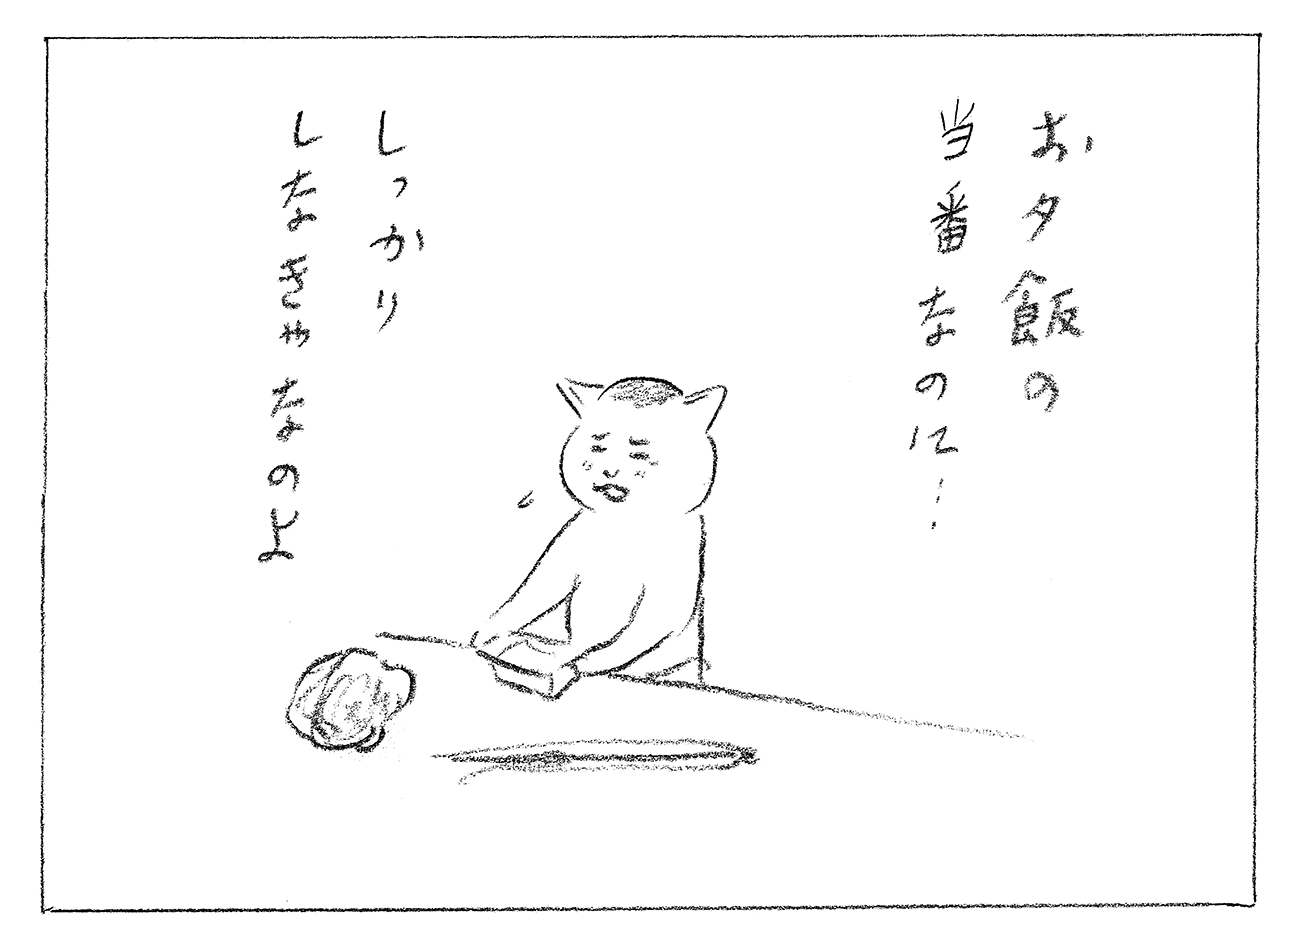 お夕飯の
当番なのに…
しっかり
しなきゃなのよ